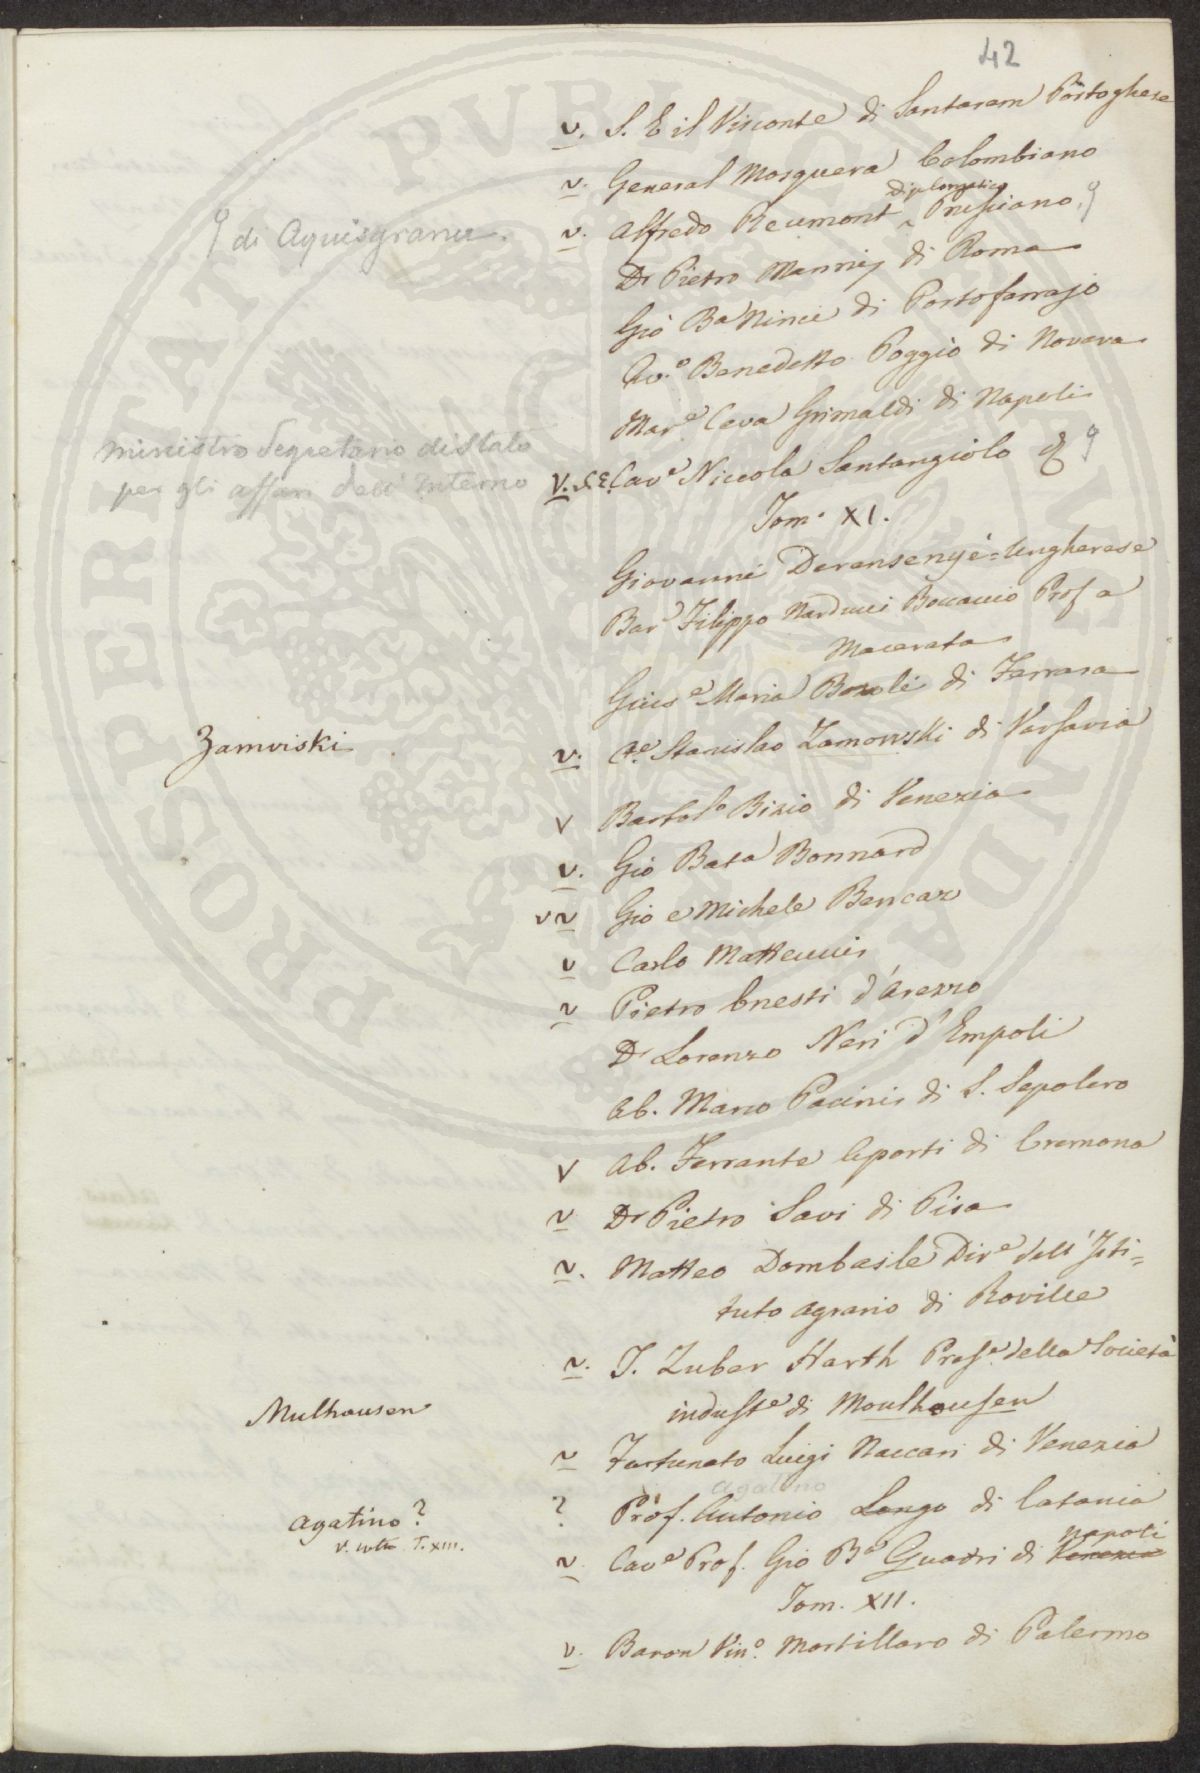 42
v. S. E il Visconte di Santarem Portoghese
v. General Mosquera Colombiano
diplomatico
ϙ di Aquisgrana. v. Alfredo Reumont ‸ Prussiano. ϙ
Dr Pietro Manni di Roma
Gio Ba Ninci di Portoferrajo
Av.o Benedetto Poggio di Novara
Mar.e Ceva Grimaldi di Napoli
ministro Segretario di Stato
per gli affari dell' Interno V. S.E. Cav.e Niccola Santangiolo ϙ
Tom. XI.
Giovanni Derensenyè = Ungherese
Bar.e Filippo Narducci Boccaccio Prof a
Macerata
Gius.e Maria Bozoli di Ferrara
Zamviski v. C.e Stanislao Zamowski di Varsavia
v Bartol.o Bizio di Venezia
v. Gio Bata Bonnard
v v Gio e Michele Bencar
v Carlo Matteucci
v Pietro Onesti d'Arezzo
Dr Lorenzo Neri d'Empoli
Ab. Marco Pacini di S. Sepolcro
v Ab. Ferrante Aporti di Cremona
v Dr Pietro Savi di Pisa
v. Matteo Dombasle Dir.e dell' Isti=
tuto agrario di Roville
v. J. Zuber Harth Pres.e della Società
Mulhausen indust.e di Moulhousen
v Fortunato Luigi Naccari di Venezia
Agatino
Agatino? ? Prof. Antonio Longo di Catania
v. sotto T. XIII.
Napoli
v Cav.e Prof. Gio B.a Quadri di Venezia
Tom. XII.
v. Baron Vin.o Mortillaro di Palermo
PROSPERITATI PVBLICAE AVGENDAE